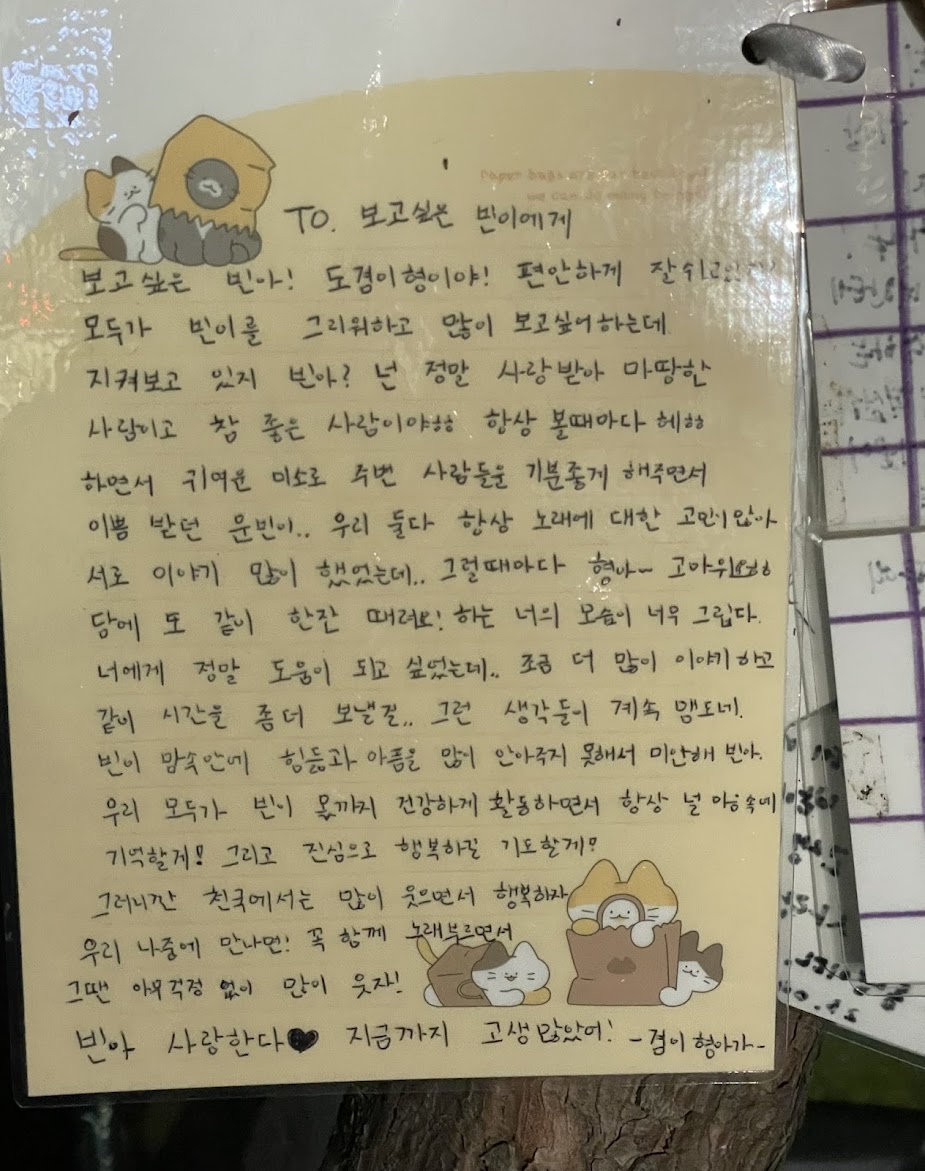 Paper bags are
we can do many
TO. 보고싶은 빈이에게
보고싶은 빈아! 도겸이형이야! 편안하게 잘쉬고
모두가 빈이를 그리워하고 많이 보고싶어하는데
지켜보고 있지 빈아? 넌 정말 사랑받아 마땅한
사람이고 참 좋은 사람이야ㅎㅎ 항상 볼때마다 헤ㅎㅎ
하면서 귀여운 미소로 주변 사람들을 기분좋게 해주면서
이쁨 받던 문빈이.. 우리 둘다 항상 노래에 대한 고민이 많아
서로 이야기 많이 했었는데.. 그럴때마다 형아~ 고마워요ㅎㅎ
담에 또 같이 한잔 때려요! 하는 너의 모습이 너무 그립다.
너에게 정말 도움이 되고 싶었는데.. 조금 더 많이 이야기 하고
같이 시간을 좀 더 보낼걸.. 그런 생각들이 계속 맴도네.
빈이 맘속안에 힘듦과 아픔을 많이 안아주지 못해서 미안해 빈아.
우리 모두가 빈이 몫까지 건강하게 활동하면서 항상 널 마음속에
기억할게! 그리고 진심으로 행복하길 기도할게!
그러니깐 천국에서는 많이 웃으면서 행복하자
우리 나중에 만나면! 꼭 함께 노래부르면서
그땐 아무걱정 없이 많이 웃자!
빈아 사랑한다♥ 지금까지 고생많았어! -겸이 형아가-